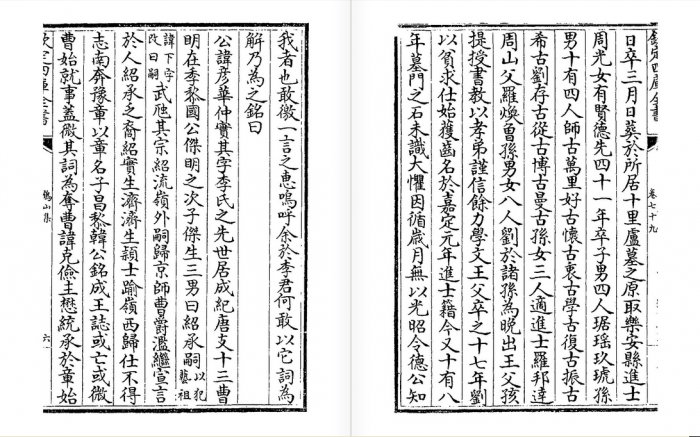 欽定四庫全書
卷七十九
日卒三月日葬於所居十里廬墓之原取樂安縣進士
周光女有賢德先四十一年卒子男四人琚瑶玖琥孫
男十有四人師古萬里好古懷古衷古學古復古振古
希古劉存古從古博古曼古孫女三人適進士羅邦達
周山父羅煥曾孫男女八人劉於諸孫為晚出王父孩
提授書教以孝弟謹信餘力學文王父卒之十七年劉
以貧求仕始獲齒名於嘉定元年進士籍今又十有八
年墓門之石未識大懼因循歲月無以光昭令德公知
我者也敢徼一言之惠嗚呼余於李君何敢以它詞為
解乃為之銘曰
公諱彥華仲實其字李氏之先世居成紀唐支十三曹
明在季黎國公傑明之次子傑生三男曰紹承嗣以犯藝祖
諱下字改曰嗣武虺其宗紹流嶺外嗣歸京師曹爵濫繼宣言
於人紹承乏裔紹實生濤濤生頴士踰嶺西歸仕不得
志南奔豫章以章名子昌黎韓公銘成王誌或亡或微
曹始就事蓋微其詞為奪曹諱克儉主懋統承於章始
欽定四庫全書
鶴山集
六